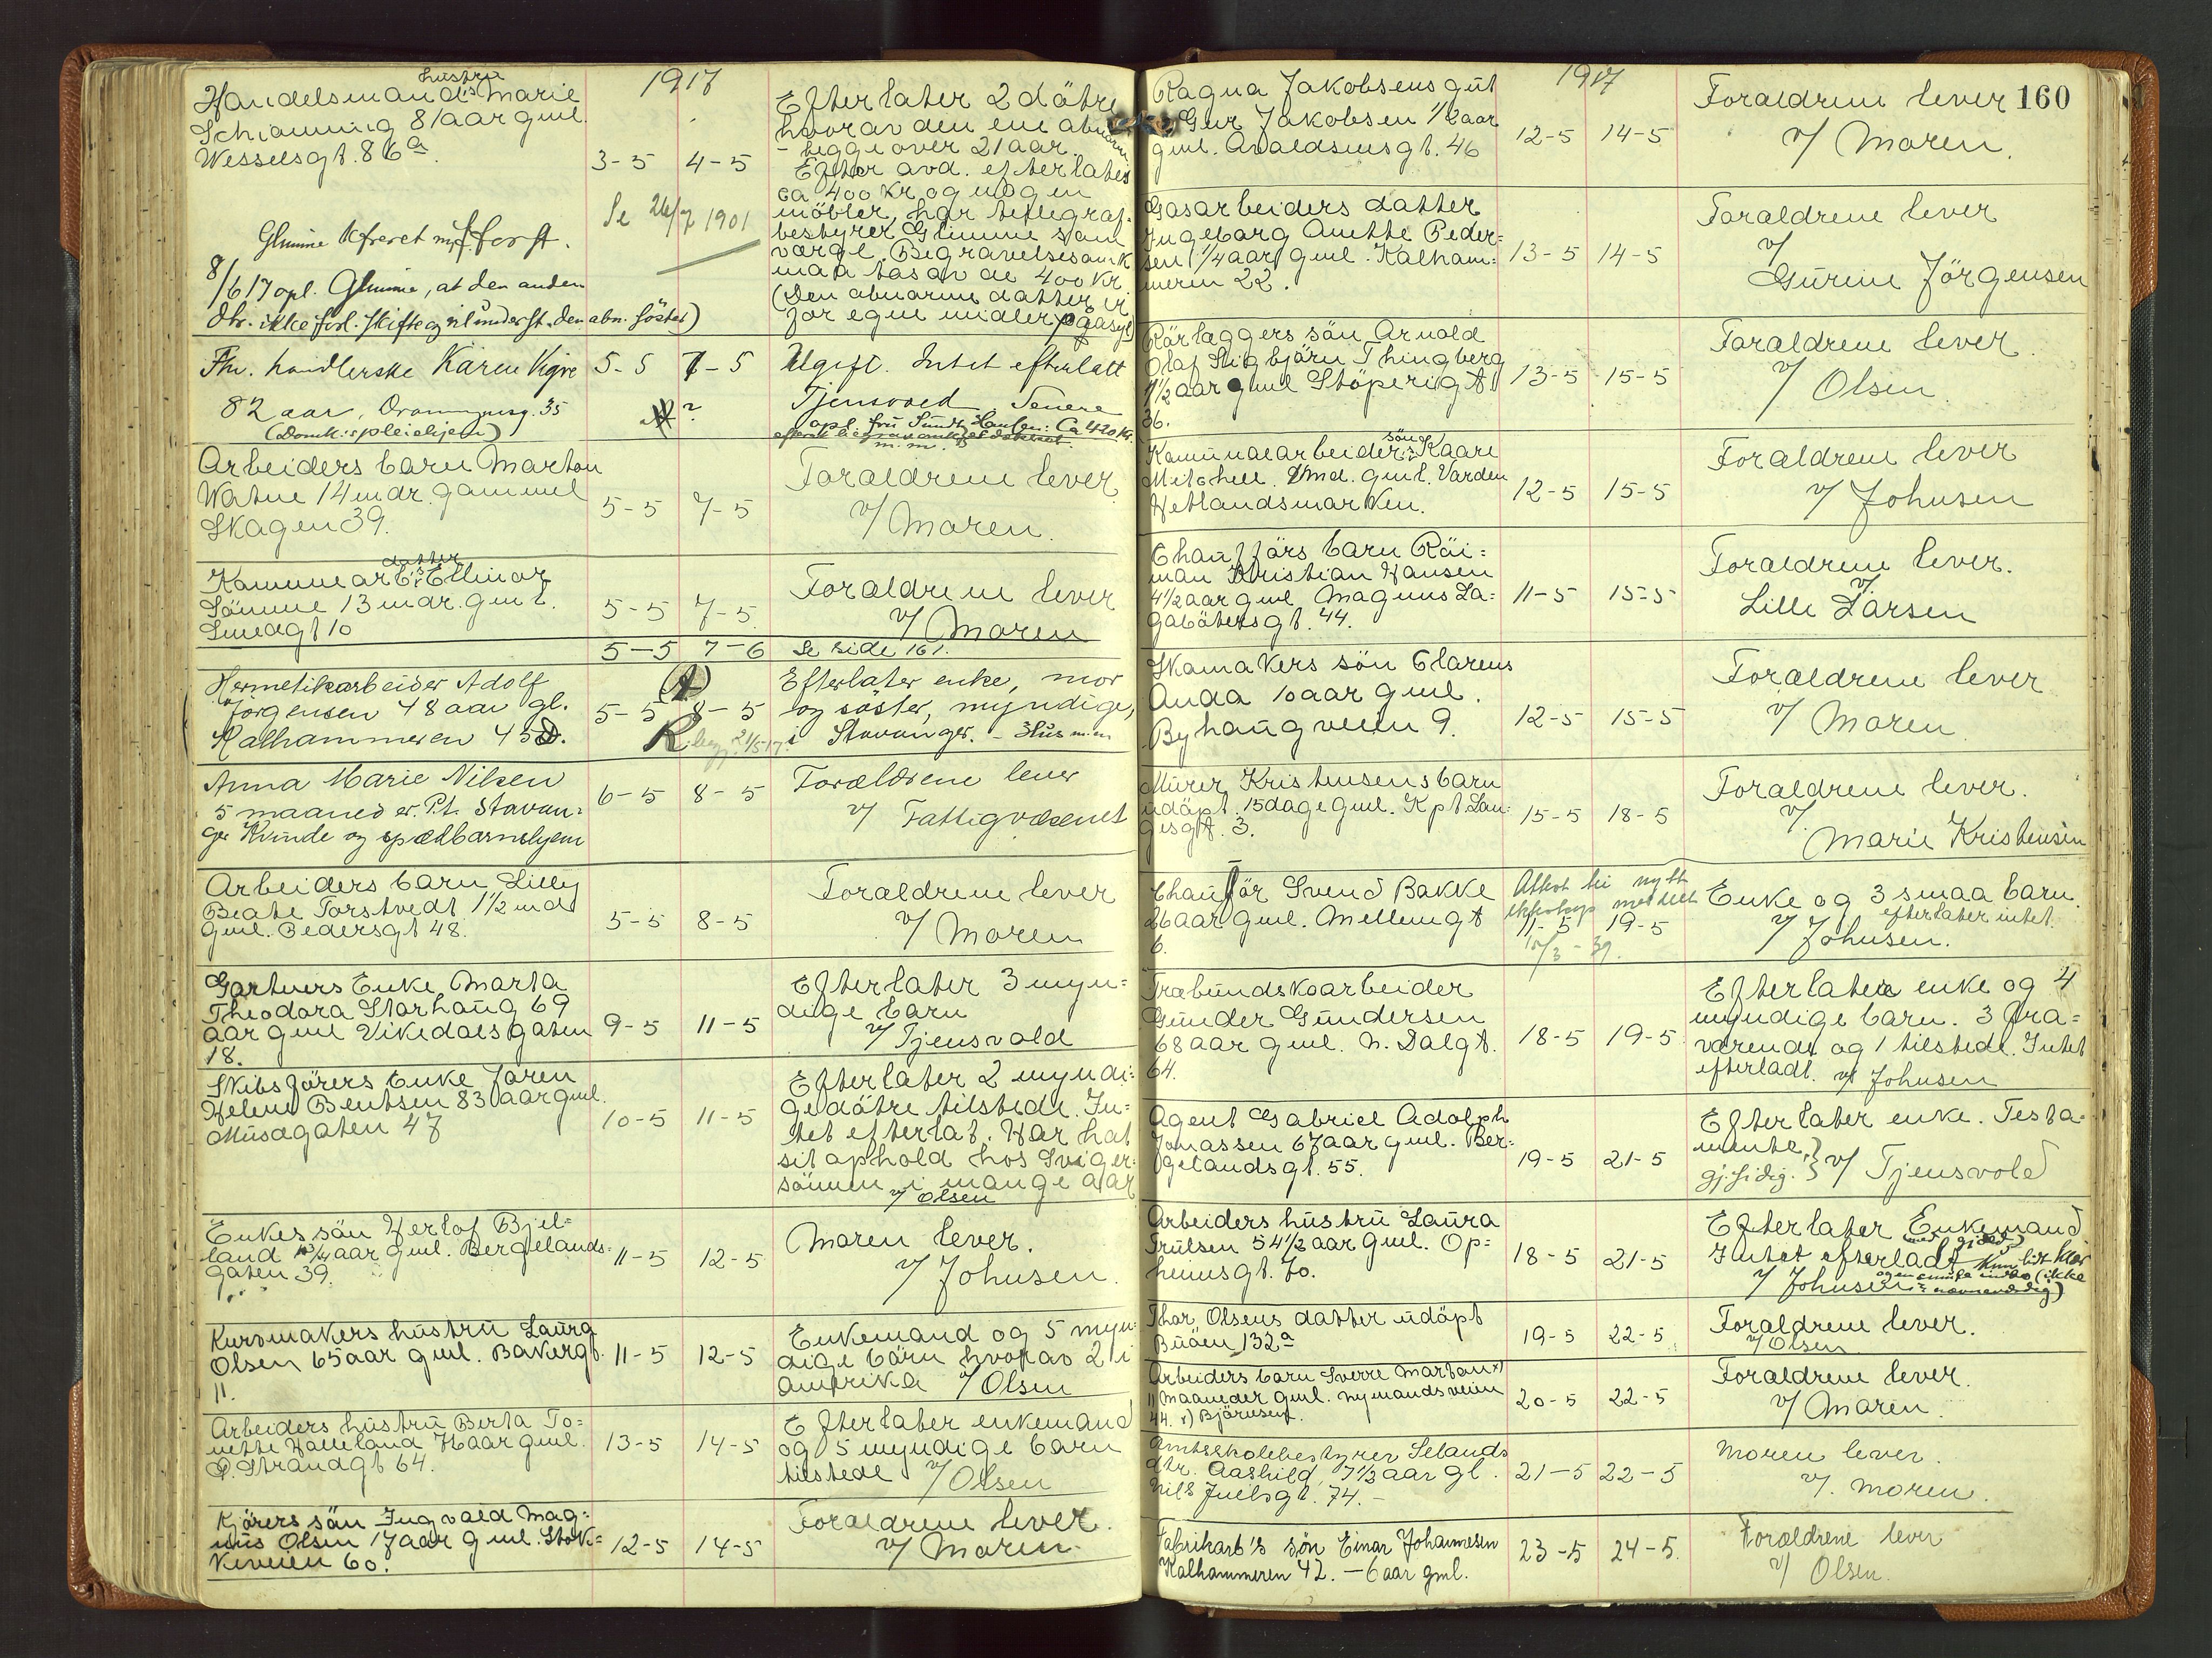 1917
hustru
Handelsmand's Marie
Schiønning 81 aar gml.
Wesselsgt. 86a.
3-5 4-5
Se 26/7 1901
Efterlater 2 døtre
hvorav den ene abnorm
- begge over 21 aar.
Efter avd. efterlates
ca 400 kr og nogen
möbler, har tellegraf-
bestyrer Glimme som
værge. Begravelsesomk
maa tas av de 400 kr.
(Den abnorme datter er
for egne midler på asyl)
8/6 17 opl. Glimme, at den anden
dtr. ikke forl. skifte og vil underst. den abn. søster)
Fhv. handlerske Karen Vigre
82 aar, Dronningensg. 35
(Domk. spleiehjem)
5-5 7-5
Ugift. Intet efterlatt
Tjensvold. Senere
opl. fru Sundt Hansen: Ca 420 kr.
m. m.
Arbeiders barn Marton
Watne 14 mdr. gammel
Skagen 39.
5-5 7-5
Foraldrene lever
v/ Moren.
datter
Kommunearb's Ellinor
Sömme 13 mdr. gml.
Smedgt 10
5-5 7-5
Foraldrene lever
v/ Moren
5-5 7-6 Se side 161.
Hermetikarbeider Adolf
Jörgensen 48 aar gl.
Kalhammeren 45
5-5 8-5
(A)
R
Efterlater enke, mor
og søster, myndige,
i Stavanger. -
Anna Marie Nilsen
5 maaneder. Pt. Stavan-
ger Kvinde og spædbarnshjem
6-5 8-5
Forældrene lever
v/ Fattigvæsenet
Arbeiders barn Lilly
Beate Torstvedt 1½ md
gml. Pedersgt 48.
5-5 8-5
Foraldrene lever
v/ Moren
Gartners Enke Marta
Theodora Storhaug 69
aar gml Vikedalsgaten
18.
9-5 11-5
Efterlater 3 myn=
dige barn
v/ Tjensvold
Skibsførers Enke Joren
Helene Bentsen 83 aar gml.
Musægaten 47
10-5 11-5
Efterlater 2 myndi-
ge døtre tilstede. In-
tet efterlat. Har hat
sit ophold hos Sviger-
sönnen i mange aar
v/ Olsen
Enkes sön Herlof Bjel=
land aar gml. Bergelands-
gaten 39.
11-5 12-5
Moren lever.
v/ Johnsen.
Kurvmakers hustru Laura
Olsen 65 aar gml. Bakergt.
11.
11-5 12-5
Enkemand og 5 myn-
dige børn hvorav 2 i
Amerika v/ Olsen
Arbeiders hustru Berta To=
nette Halleland aar gml.
Ø. Strandgt 64.
13-5 14-5
Efterlater enkemand
og 5 myndige barn
tilstede v/ Olsen
Kjörers sön Ingvald Mag-
nus Olsen 17 aar gml. Stok-
keveien 60.
12-5 14-5
Foraldrene lever.
v/ Moren.
1917
160
Ragna Jakobsens gut
Geir Jakobsen ½ aar
gml. Avaldsnesgt. 46
12-5 14-5
Foraldrene lever
v/ Moren.
Gasarbeiders datter
Ingeborg Anette Peder=
sen 1/4 aar gml. Kalham=
meren 22.
13-5 14-5
Foraldrene lever
v/
Gurine Jörgensen
Rörlæggers sön Arnold
Olaf Sigbjörn Thingberg
1½ aar gml Stöperigt.
36.
13-5 15-5
Foraldrene lever.
v/ Olsen
sön
Komunearbeiders Kaare
Mitchell. md. gml. Varden
Hetlandsmarken.
12-5 15-5
Foraldrene lever
v/ Johnsen
Chaufförs barn Rei=
man Kristian Hansen
4½ aar gml. Magnus La=
gabötersgt. 44.
11-5 15-5
Foraldrene lever.
v/
Lille Larsen
Skomakers sön Clarens
Anda 10 aar gml.
Byhaugveien 9.
12-5 15-5
Foraldrene lever
v/ Moren
Murer Kristensens barn
udöpt. 15 dage gml. Kpt Lan-
gesgt. 3.
15-5 18-5
Foraldrene lever.
v/
Marie Kristensen
Chaufför Svend Bakke
26 aar gml. Mellemgt
6.
Attest
11-5 19-5
10/3 - 39.
Enke og 3 smaa barn.
efterlater intet.
v/ Johnsen.
Træbundskoarbeider
Gunder Gundersen
68 aar gml. N. Dalgt.
64.
18-5 19-5
Efterlater enke og 4
myndige barn. 3 fra=
værende og 1 tilstede. Intet
efterladt. v/ Johnsen
Agent Gabriel Adolph
Jonassen 67 aar gml. Ber=
gelandsgt. 55.
19-5 21-5
Efterlater enke. Testa-
mente,
gj.sidig. } v/ Tjensvold
Arbeiders hustru Laura
Trulsen 54½ aar gml. Op=
heimsgt. 70.
18-5 21-5
Efterlater Enkemand
Intet efterladt kun lidt klær
v/ Johnsen
Thor Olsens datter udöpt
Buöen 132a
19-5 22-5
Foraldrene lever.
v/ Olsen
Arbeiders barn Sverre Marton x)
11 maaneder gml. Nymandsveien
44. x) Björnsen.
20-5 22-5
Foraldrene lever.
v/ Moren.
Amtsskolebestyrer Selands
dtr. Aashild, 7½ aar gl.
Nils Juelsgt. 74. -
21-5 22-5
Moren lever.
v/. Moren.
Fabrikarb's søn Einar Johannesen
Kalhammeren 42. - 6 aar gml.
23-5 24-5.
Forældrene lever
v/ Olsen.